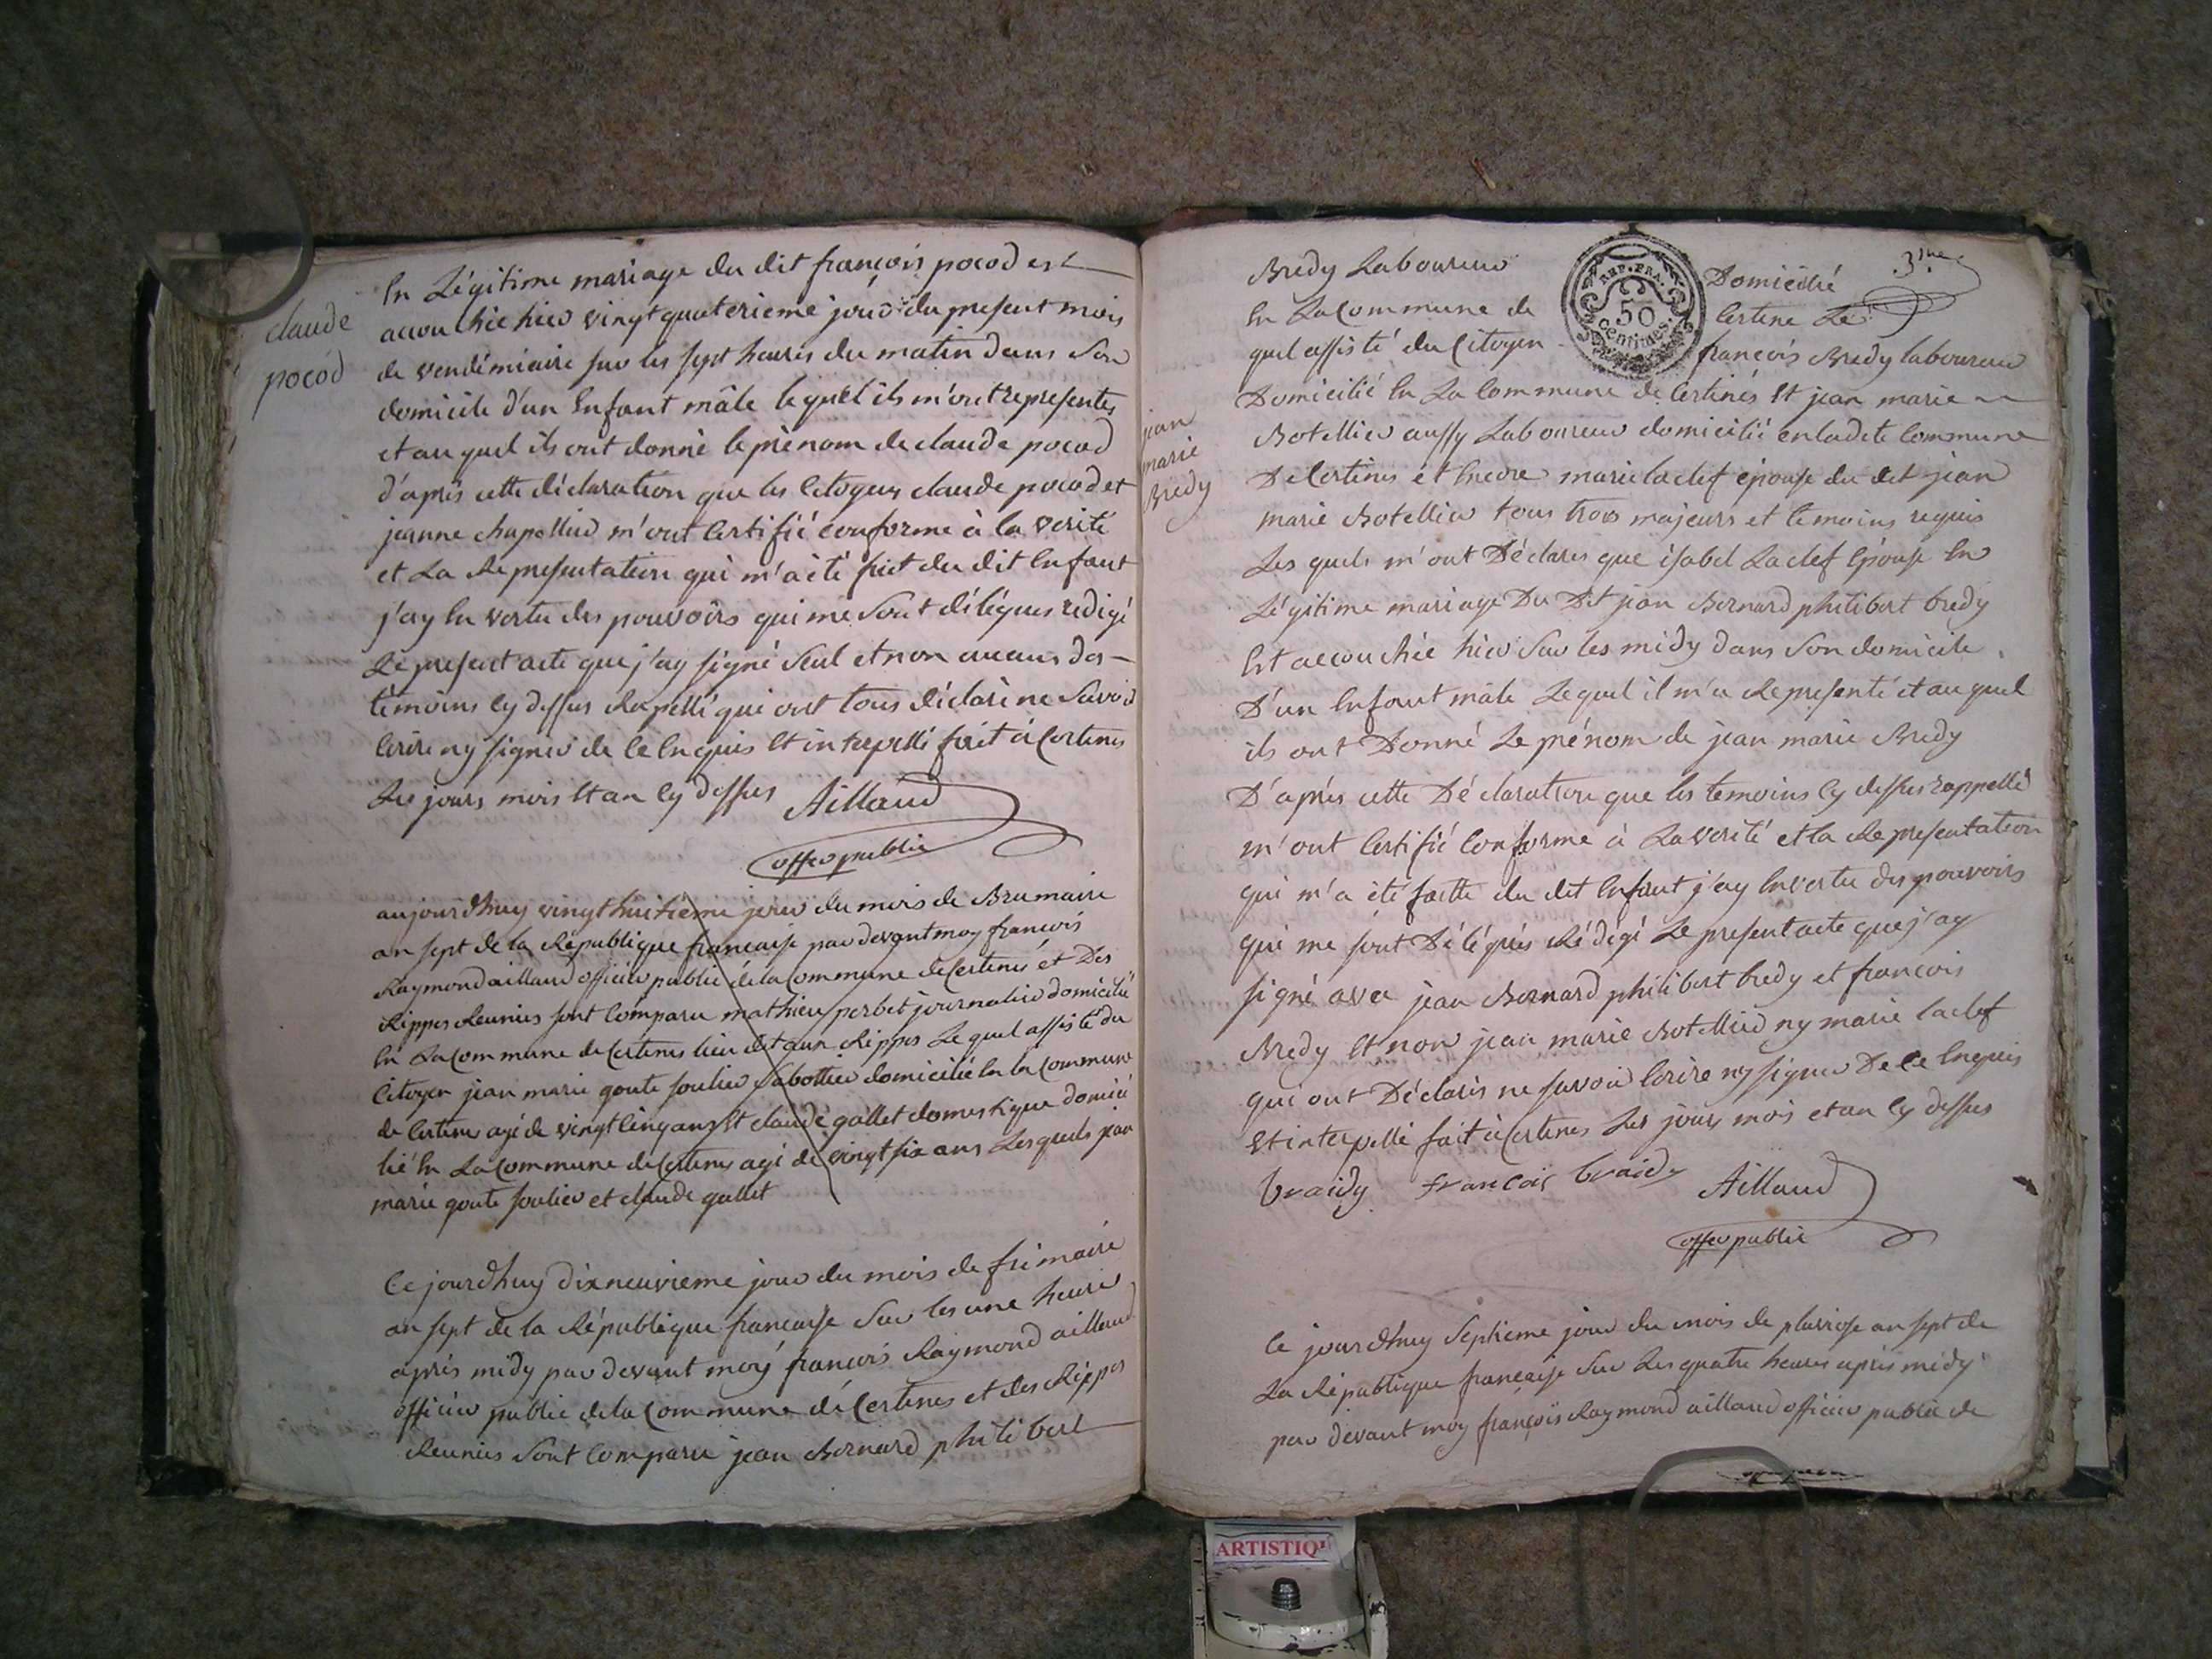 claude
pocod
En Légitime mariage du dit françois pocod est
accouchée hier vingt quaterieme jour du present mois
de vendémiaire sur les sept heures du matin dans son
domicile d'un Enfant mâle lequel ils m'ont representes
et au quel ils ont donné le prènom de claude pocod
d'apris cette déclaration que les Citoyens claude pocod et
jeanne chapellier m'ont Certifié conforme à la verité
et La Representation qui m'a été fiet du dit Enfant
j'ay En vertu des pouvoirs qui me sont délégues redigé
Le present acte que j'ay signé seul et non aucuns des
témoins Cy dessus Rapellé qui ont tous déclaré ne savoir
Ecrire ny signer de ce Enquis Et interpellé fait à Certines
Les jours mois Et an Cy dessus Aillaud
offer public
aujourdhuy vingt huitième jour du mois de Brumaire
an sept de la République francaise par devant moy francois
Raymond aillaud officier public de la Commune de Certines et Des
Rippes Reunies sont Comparu mathieu perbet journalier domicilié
En La Commune de Certines lieu dit aux Rippes Le quel assisté du
Citoyen jean marie goute soulier sabottier domicilié En la Commune
de Certines agé de vingt Cinq ans Et claude gallet domestique domici
lié En La Commune de Certines agé de vingt six ans Lesquels jean
marie goute soulier et claude gallet
Ce jourdhuy dix neuvieme jour du mois de frimaire
an sept de la République francaise Sur les une heure
après midy par devant moy francois Raymond aillaud
officier public de la Commune de Certines et des Rippes
Reunies Sont Comparu jean Bernard philibert
3me
Bredy Laboureur Domicilié
En La Commune de Certine Le
quel assisté du Citoyen françois Bredy laboureur
Domicilié En La Commune de Certines Et jean marie
Botellier aussy Laboureur domicilié en ladite Commune
De Certines et Encore marie laclef épouse du dit jean
marie Botellier tous trois majeurs et temoins requis
jean
marie
Bredy
Les quels m'ont Déclares que isabel Laclef Epouse En
Légitime mariage Du Dit jean Bernard philibert bredy
Est accouchée hier Sur les midy dans Son domicile
D'un Enfant mâle Le quel il m'a Representé et au quel
ils ont Donné Le prénom de jean marie Bredy
D'après cette Déclaration que les temoins Cy dessus rappellé
m'ont Certifié Conforme à La verité et la Representation
qui m'a été faitte du dit Enfant j'ay En vertu des pouvoirs
qui me sont Délégués Rédigé Le present acte que j'ay
signé avec jean Bernard philibert bredy et francois
Bredy Et non jean marie Botellier ny marie laclef
qui ont Déclarés ne savoir Ecrire ny signer De ce Enquis
Et interpellé fait à Certines Les jours mois et an Cy dessus
braidy françois braidy Aillaud
offer public
Ce jourdhuy Septieme jour du mois de pluviose an sept de
La République francaise Sur Les quatre heures apris midy
par devant moy françois Raymond aillaud officier public de
REP. FRA.
50
Centimes.
ARTISTIQ